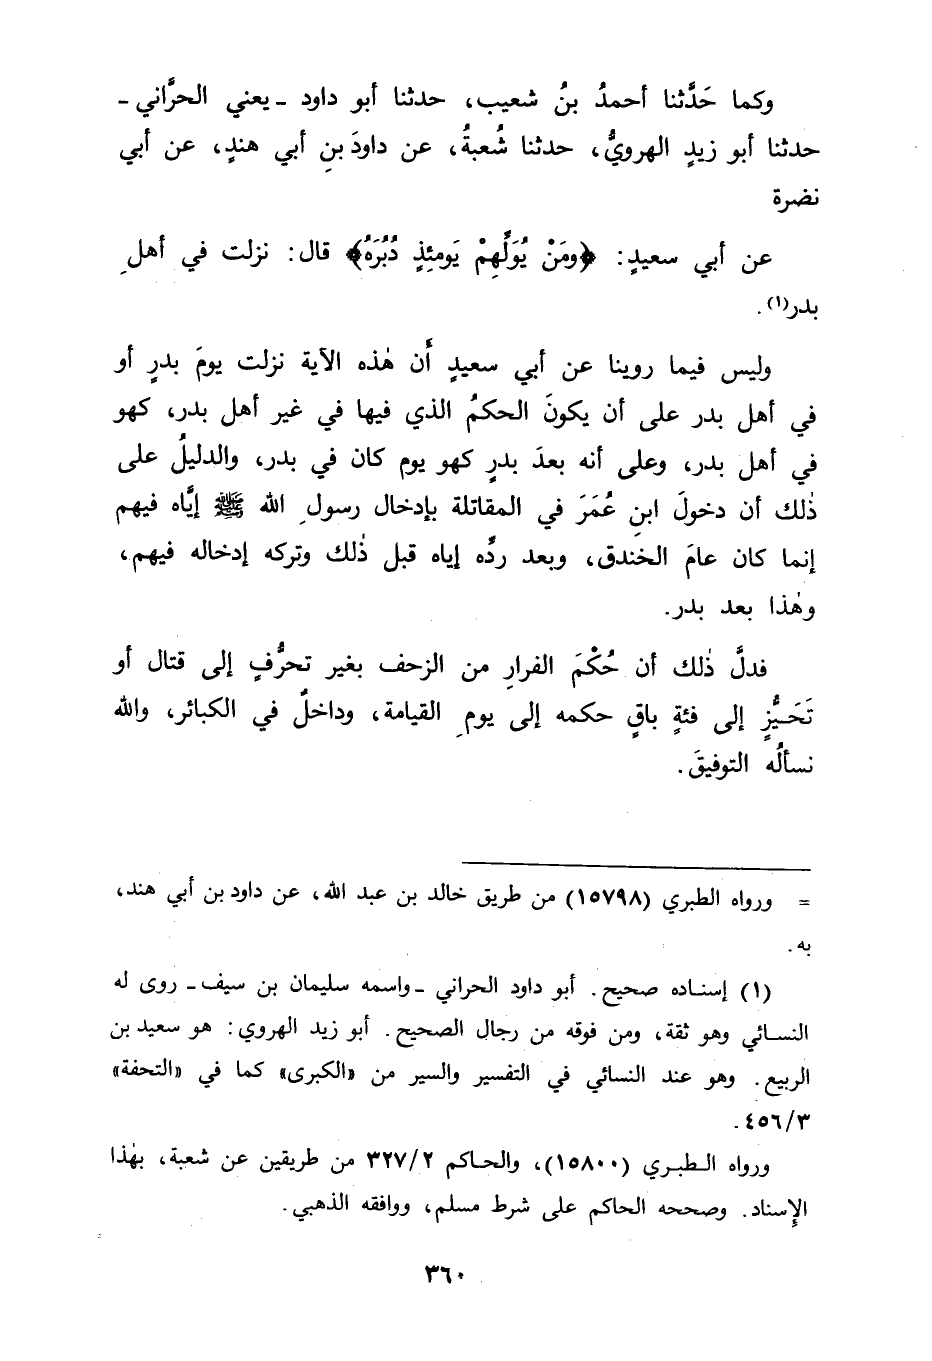 وكما حَدَّثنا أحمدُ بنُ شعيب، حدثنا أبو داود ـ يعني الحرَّاني ـ
حدثنا أبو زيدٍ الهرويُّ، حدثنا شُعبةُ، عن داودَ بنِ أبي هندٍ، عن أبي
نضرة
عن أبي سعيدٍ: ﴿ومَنْ يُوَلِّهِمْ يَومئِذٍ دُبُرَهُ﴾ قال: نزلت في أهلِ
بدر(١).
وليس فيما روينا عن أبي سعيدٍ أَن هٰذه الآية نزلت يومَ بدرٍ أو
في أهل بدر على أن يكونَ الحكمُ الذي فيها في غير أهل بدر، كهو
في أهل بدر، وعلى أنه بعدَ بدرٍ كهو يوم كان في بدر، والدليلُ على
ذٰلك أن دخولَ ابنِ عُمَرَ في المقاتلة بإدخال رسولِ الله ﷺ إيَّاه فيهم
إنما كان عامَ الخندق، وبعد ردِّه إياه قبل ذٰلك وتركه إدخاله فيهم،
وهٰذا بعد بدر.
فدلَّ ذٰلك أن حُكْمَ الفرارِ من الزحف بغير تحرُّفٍ إلى قتال أو
تَحَيُّزٍ إلى فئةٍ باقٍ حكمه إلى يومِ القيامة، وداخلٌ في الكبائر، والله
نسألُه التوفيقَ.
= ورواه الطبري (١٥٧٩٨) من طريق خالد بن عبد الله، عن داود بن أبي هند،
به.
(١) إسناده صحيح. أبو داود الحراني ـ واسمه سليمان بن سيف ـ روى له
النسائي وهو ثقة، ومن فوقه من رجال الصحيح. أبو زيد الهروي: هو سعيد بن
الربيع. وهو عند النسائي في التفسير والسير من «الكبرى» كما في «التحفة»
٤٥٦/٣.
ورواه الطبري (١٥٨٠٠)، والحاكم ٣٢٧/٢ من طريقين عن شعبة، بهٰذا
الإِسناد. وصححه الحاكم على شرط مسلم، ووافقه الذهبي.
٣٦٠